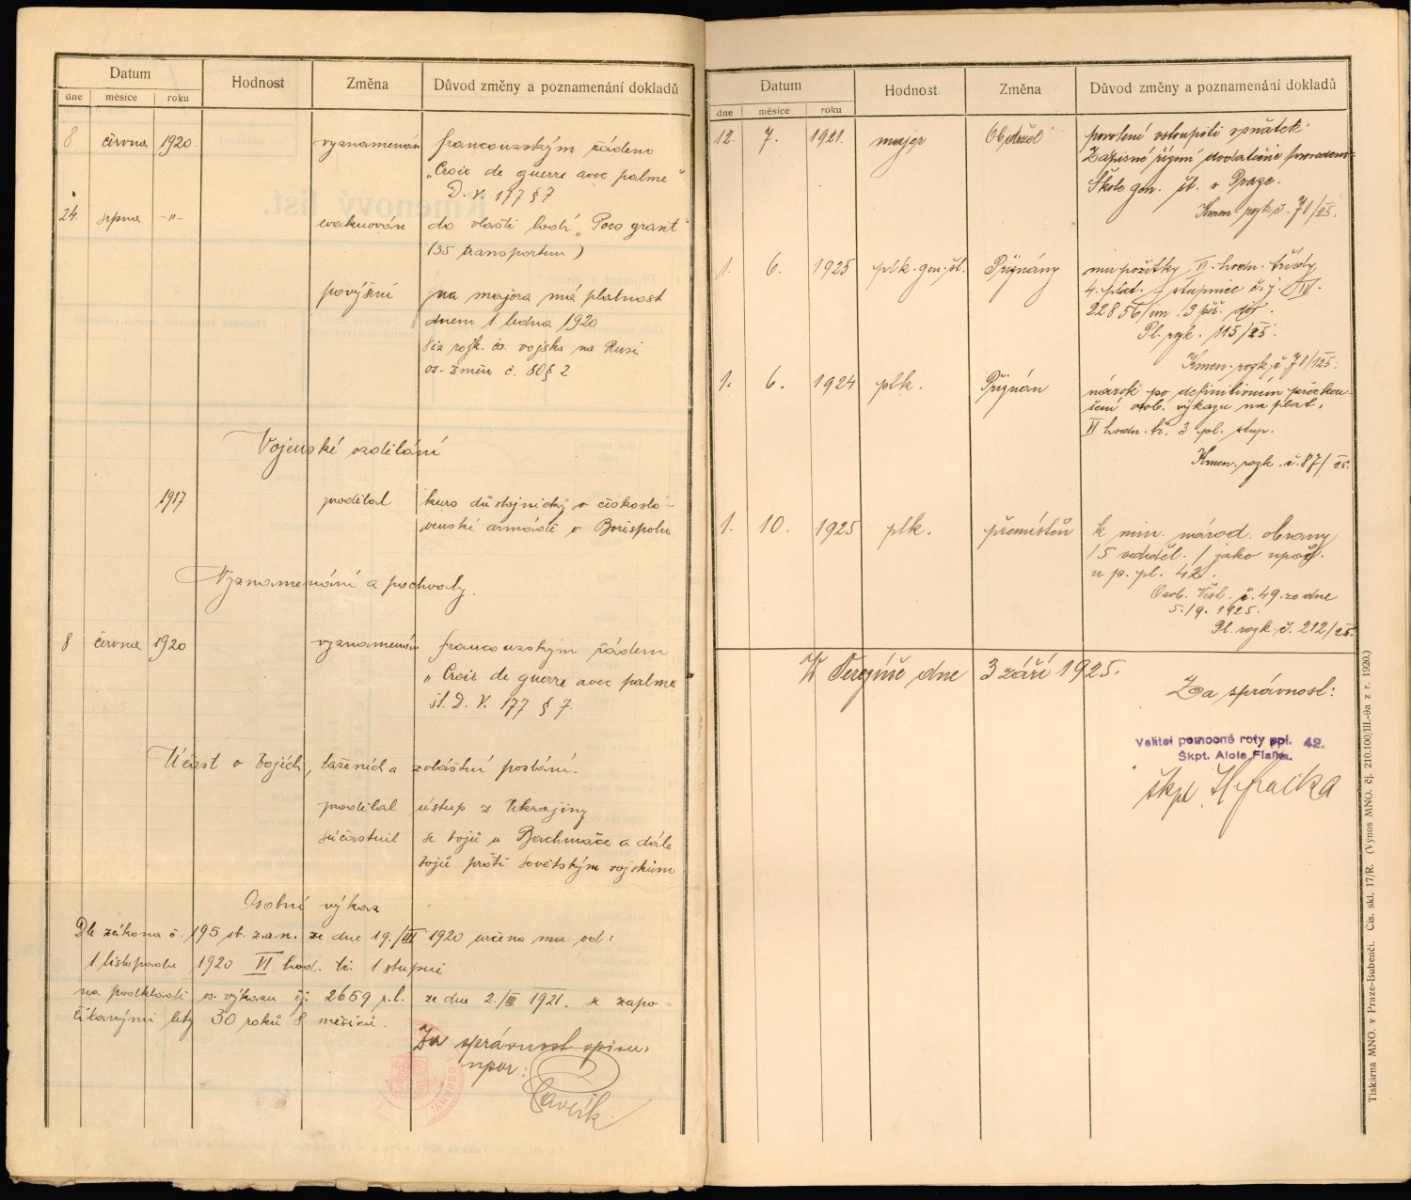 Datum
Hodnost
Změna
Důvod změny a poznamenání dokladů
dne měsíce roku
8 června 1920 vyznamenán francouzským řádem
„Croix de guerre avec palme"
D. V. 177 § 7
24. srpna -"- evakuován do vlasti lodí „Poco grant"
(35 transportem)
povýšení na majora má platnost
dnem 1 ledna 1920
Viz rozk. čs. vojska na Rusi
os. změn č. 80 § 2
Vojenské vzdělání
1917 prodělal kurs důstojnický v českoslo-
venské armádě v Borispolu
Vyznamenání a pochvaly.
8 června 1920 vyznamenán francouzským řádem
„Croix de guerre avec palme
D. V. 177 § 7.
Účast v bojích, taženích a zvláštní poslání.
prodělal ústup z Ukrajiny
súčastnil se bojů u Bachmače a dále
bojů proti sovětským vojskům
Osobní výkaz
Dle zákona č. 195 sb. z. a n. ze dne 19./III 1920 určeno mu od:
1 listopadu 1920 VI hod. tř. 1 stupni
na podkladě os. výkazu čj. 2659 ze dne 2./III 1921. s zapo-
čítanými lety 30 roků 8 měsíců.
Za správnost opisu:
npor.:
Datum
Hodnost
Změna
Důvod změny a poznamenání dokladů
dne měsíce roku
12. 7. 1921. major Obdržel povolení vstoupiti zpnátek
Zápisné řízení dodatečně
Škole gen. št. v Praze.
Kmen. rozk. č. 71/25.
1. 6. 1925 plk. gen. št. Přiznány mu požitky VI. hodn. třídy
4. plat. stupnice č. j.
22856/
Pl. rozk. 115/25.
Kmen. rozk. č. 71/125.
1. 6. 1924 plk. Přiznán nárok po definitivním přezkou-
šení osob. výkazu na plat.
VI hodn. tř. 3 pl. stup.
Kmen. rozk. č. 87/25.
1. 10. 1925 plk. přemístěn k min. národ. obrany
/5 odděl./ jako
u p. pl. 42.
Osob. Věst. č. 49. ze dne
5./9. 1925.
Pl. rozk. č. 212/25.
V Terezíně dne 3 září 1925.
Za správnost:
Velitel pomocné roty spl. 42.
Škpt. Alois
škpt.
Tiskárna MNO. v Praze-Bubenči. Čís. skl. 17/R. (Výnos MNO. čj. 210.100/III.-9a z r. 1920.)